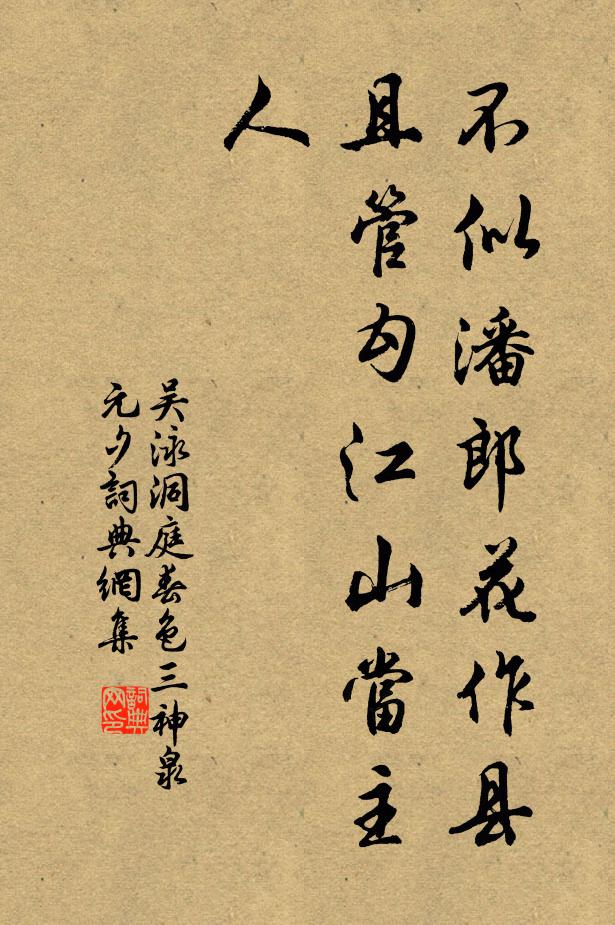 不似潘郎花作县
且管勾江山當主
人
吴泳洞庭春色三神泉
元夕詞典網集
詞典网印